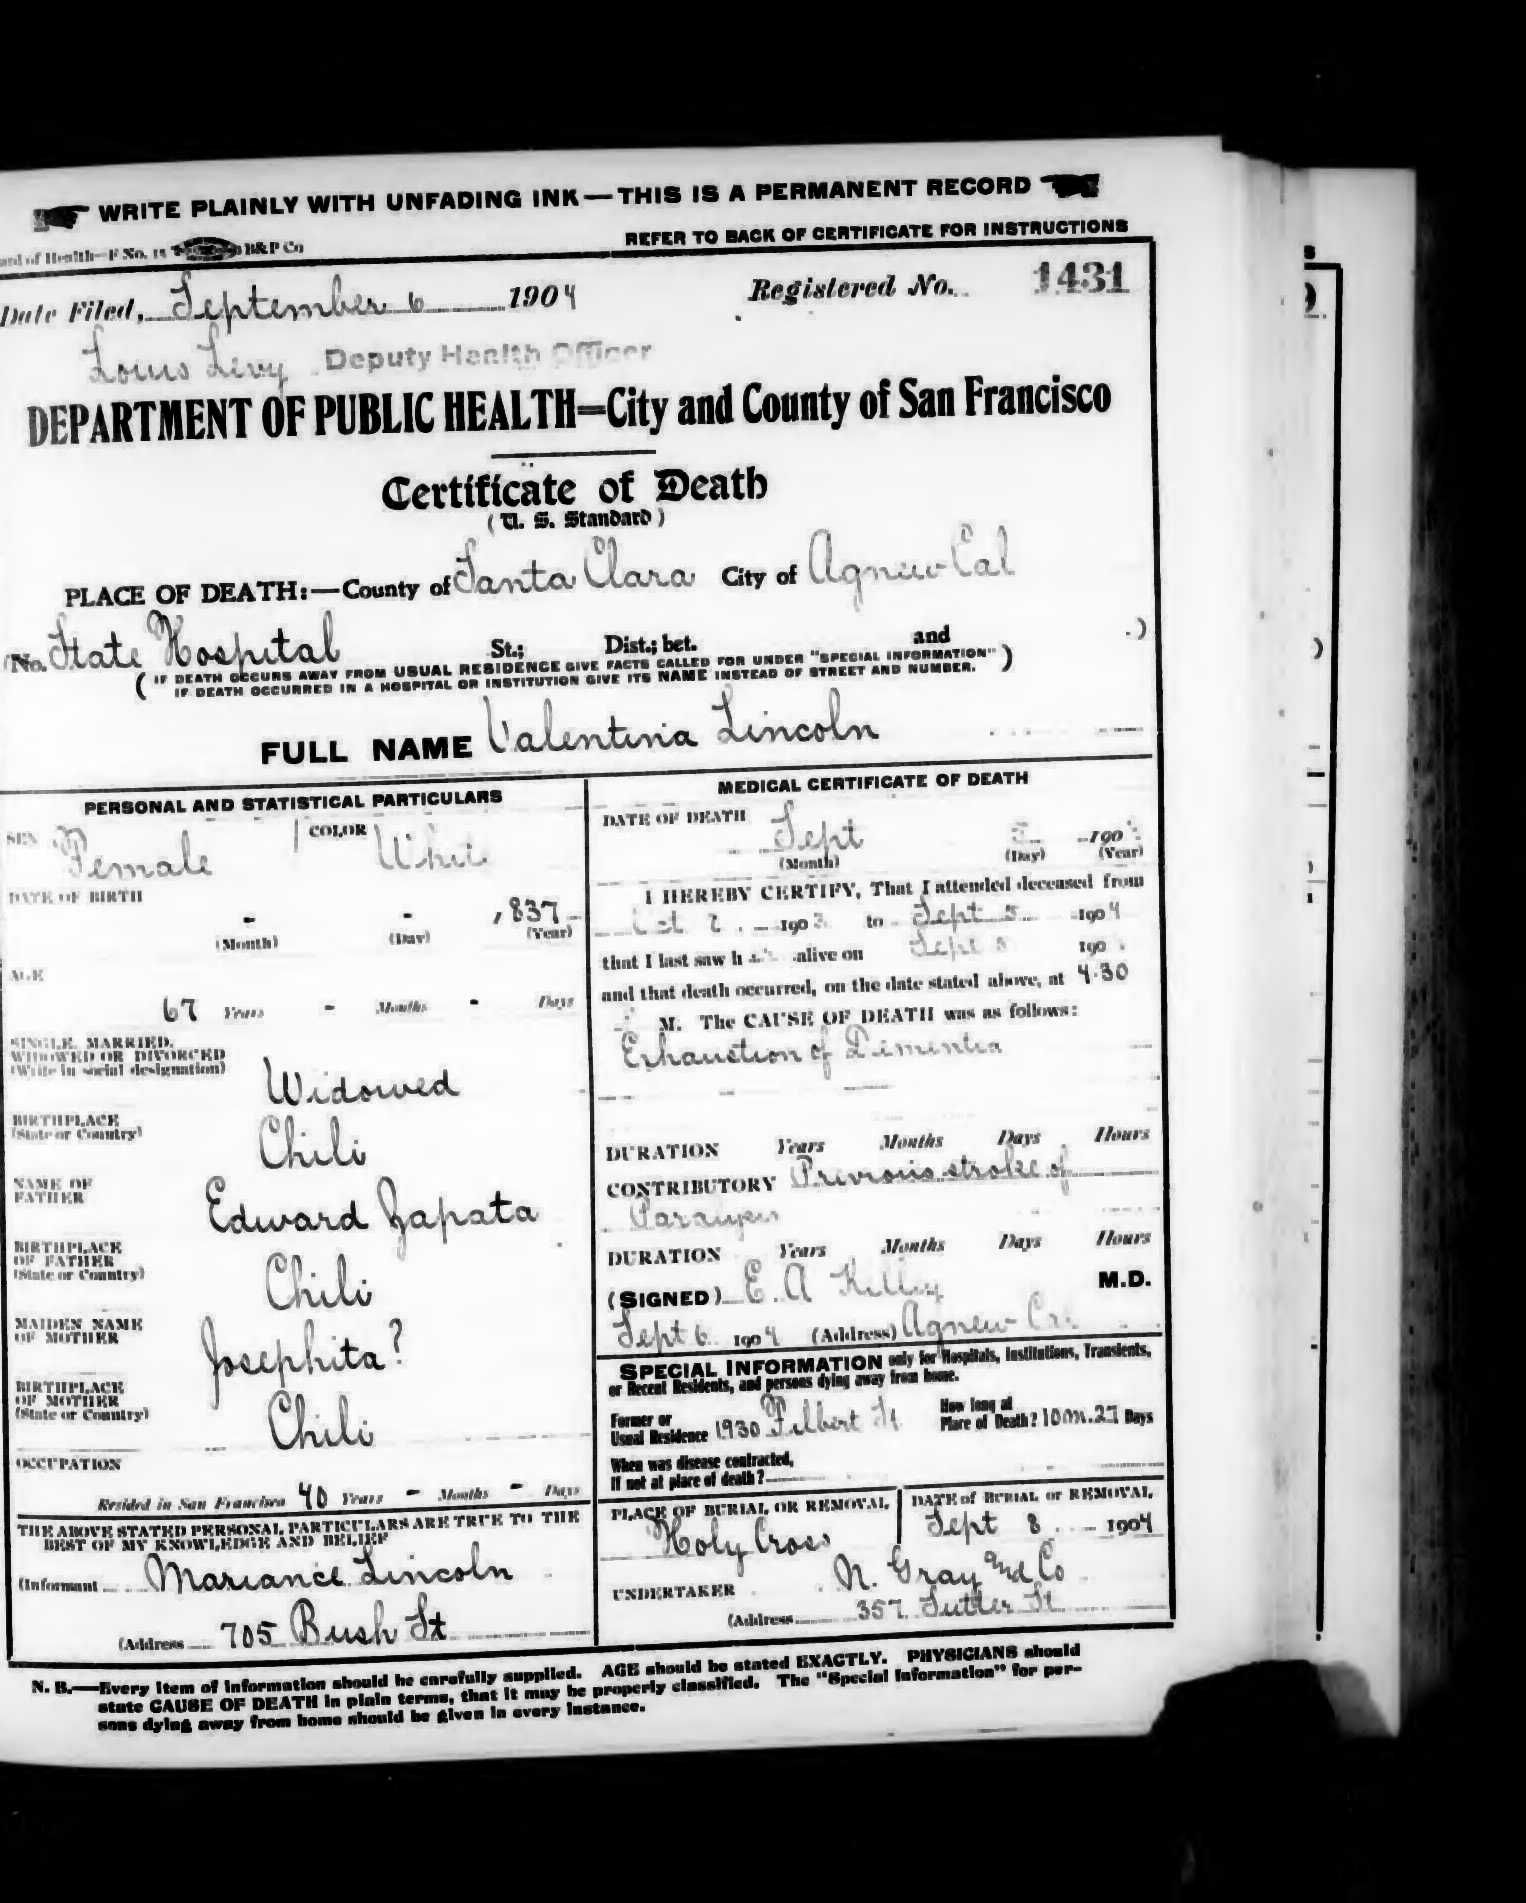 WRITE PLAINLY WITH UNFADING INK—THIS IS A PERMANENT RECORD
ard of Health—F No. 15 B&P Co
REFER TO BACK OF CERTIFICATE FOR INSTRUCTIONS
Date Filed, September 6 1904 Registered No. 1431
Louis Levy Deputy Health Officer
DEPARTMENT OF PUBLIC HEALTH=City and County of San Francisco
Certificate of Death
(U. S. Standard)
PLACE OF DEATH:—County of Santa Clara City of Agnew Cal
(No. State Hospital St.; Dist.; bet. and )
(IF DEATH OCCURS AWAY FROM USUAL RESIDENCE GIVE FACTS CALLED FOR UNDER "SPECIAL INFORMATION"
IF DEATH OCCURRED IN A HOSPITAL OR INSTITUTION GIVE ITS NAME INSTEAD OF STREET AND NUMBER.)
FULL NAME Valentina Lincoln
PERSONAL AND STATISTICAL PARTICULARS
SEX Female COLOR White
DATE OF BIRTH
- - 1837
(Month) (Day) (Year)
AGE
67 Years - Months - Days
SINGLE, MARRIED,
WIDOWED OR DIVORCED
(Write in social designation)
Widowed
BIRTHPLACE
(State or Country)
Chili
NAME OF
FATHER
Edward Zapata
BIRTHPLACE
OF FATHER
(State or Country)
Chili
MAIDEN NAME
OF MOTHER
Josephita?
BIRTHPLACE
OF MOTHER
(State or Country)
Chili
OCCUPATION
Resided in San Francisco 40 Years - Months - Days
THE ABOVE STATED PERSONAL PARTICULARS ARE TRUE TO THE
BEST OF MY KNOWLEDGE AND BELIEF
(Informant Mariance Lincoln
(Address 705 Bush St
MEDICAL CERTIFICATE OF DEATH
DATE OF DEATH
Sept 5 190
(Month) (Day) (Year)
I HEREBY CERTIFY, That I attended deceased from
Oct 190 to Sept 5 1904
that I last saw h alive on Sept 5 190
and that death occurred, on the date stated above, at 4.30
M. The CAUSE OF DEATH was as follows:
Exhaustion of Dementia
DURATION Years Months Days Hours
CONTRIBUTORY Previous stroke of
Paralysis
DURATION Years Months Days Hours
(SIGNED) E. A Kelley M.D.
Sept 6 1904 (Address) Agnew Cal
SPECIAL INFORMATION only for Hospitals, Institutions, Transients,
or Recent Residents, and persons dying away from home.
Former or
Usual Residence 1930 Filbert St
How long at
Place of Death? 10 m. 27 Days
When was disease contracted,
If not at place of death?
PLACE OF BURIAL OR REMOVAL
Holy Cross
DATE of BURIAL or REMOVAL
Sept 8 1904
UNDERTAKER N. Gray and Co
(Address 357 Sutter St
N. B.—Every item of information should be carefully supplied. AGE should be stated EXACTLY. PHYSICIANS should
state CAUSE OF DEATH in plain terms, that it may be properly classified. The "Special Information" for per-
sons dying away from home should be given in every instance.